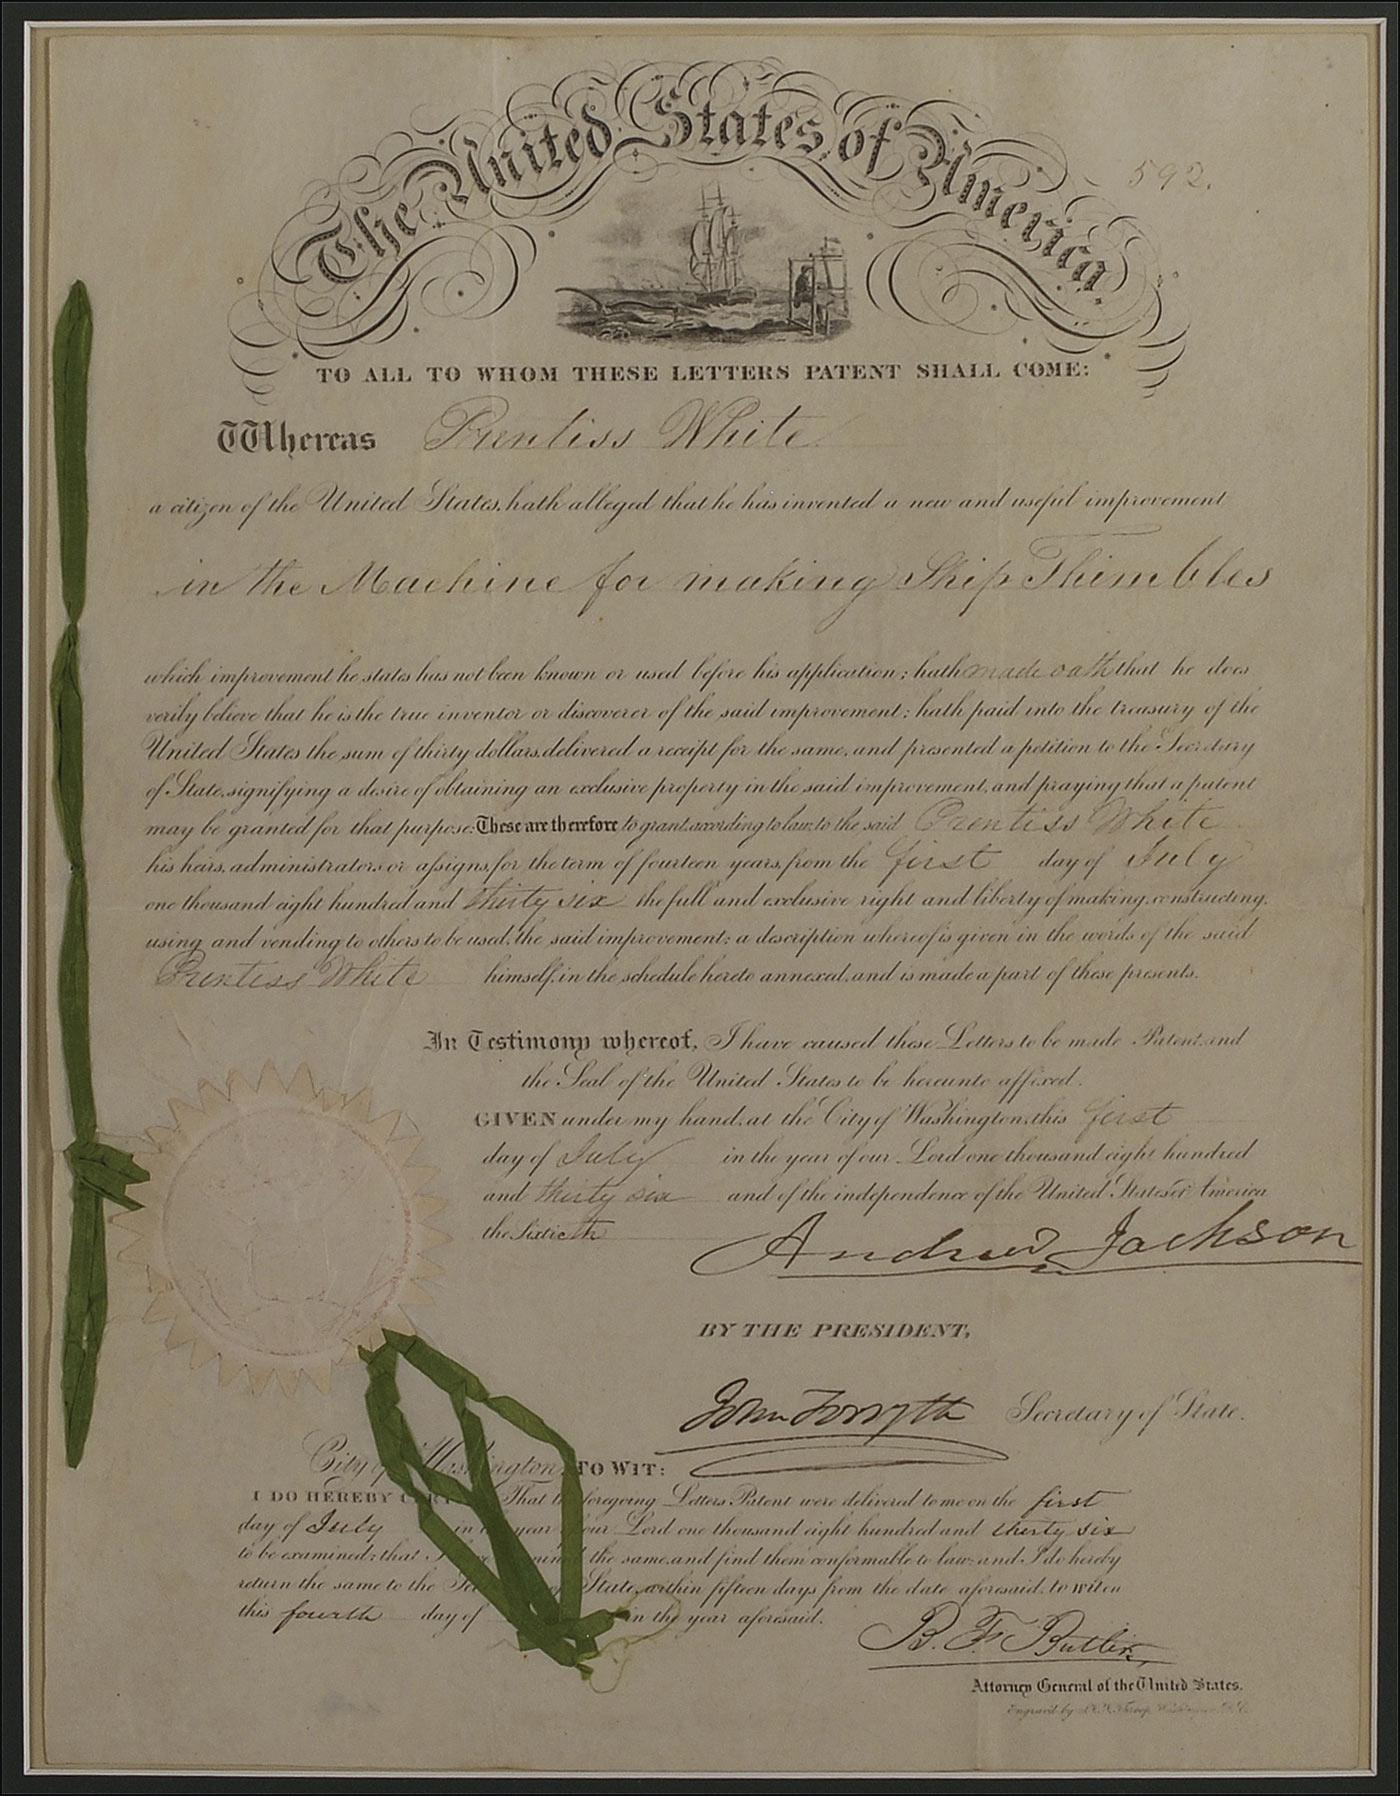 The United States of America
592.
TO ALL TO WHOM THESE LETTERS PATENT SHALL COME:
Whereas Prentiss White
a citizen of the United States, hath alleged that he has invented a new and useful improvement
in the Machine for making Ship Thimbles
which improvement he states has not been known or used before his application; hath made oath that he does
verily believe that he is the true inventor or discoverer of the said improvement; hath paid into the treasury of the
United States the sum of thirty dollars, delivered a receipt for the same, and presented a petition to the Secretary
of State, signifying a desire of obtaining an exclusive property in the said improvement, and praying that a patent
may be granted for that purpose: These are therefore to grant, according to law, to the said Prentiss White
his heirs, administrators or assigns, for the term of fourteen years, from the first day of July
one thousand eight hundred and thirty six the full and exclusive right and liberty of making, constructing,
using and vending to others to be used, the said improvement; a description whereof is given in the words of the said
Prentiss White himself, in the schedule hereto annexed, and is made a part of these presents.
In Testimony whereof, I have caused these Letters to be made Patent, and
the Seal of the United States to be hereunto affixed.
GIVEN under my hand, at the City of Washington, this first
day of July in the year of our Lord one thousand eight hundred
and thirty six and of the independence of the United States of America
the Sixtieth
Andrew Jackson
BY THE PRESIDENT,
John Forsyth Secretary of State.
City of Washington, TO WIT:
I DO HEREBY That the foregoing Letters Patent were delivered to me on the first
day of July in the year of our Lord one thousand eight hundred and thirty six
to be examined; that I have examined the same, and find them conformable to law; and I do hereby
return the same to the of State, within fifteen days from the date aforesaid, to wit on
this fourth day of in the year aforesaid.
B. F. Butler,
Attorney General of the United States.
Engraved by Throop, Washington